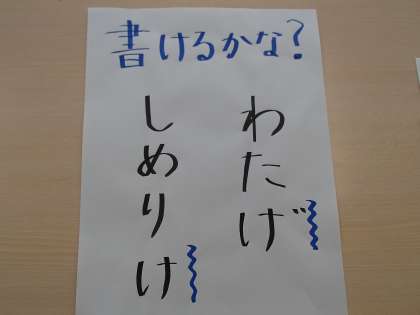 書けるかな?
わたげ
しめりけ